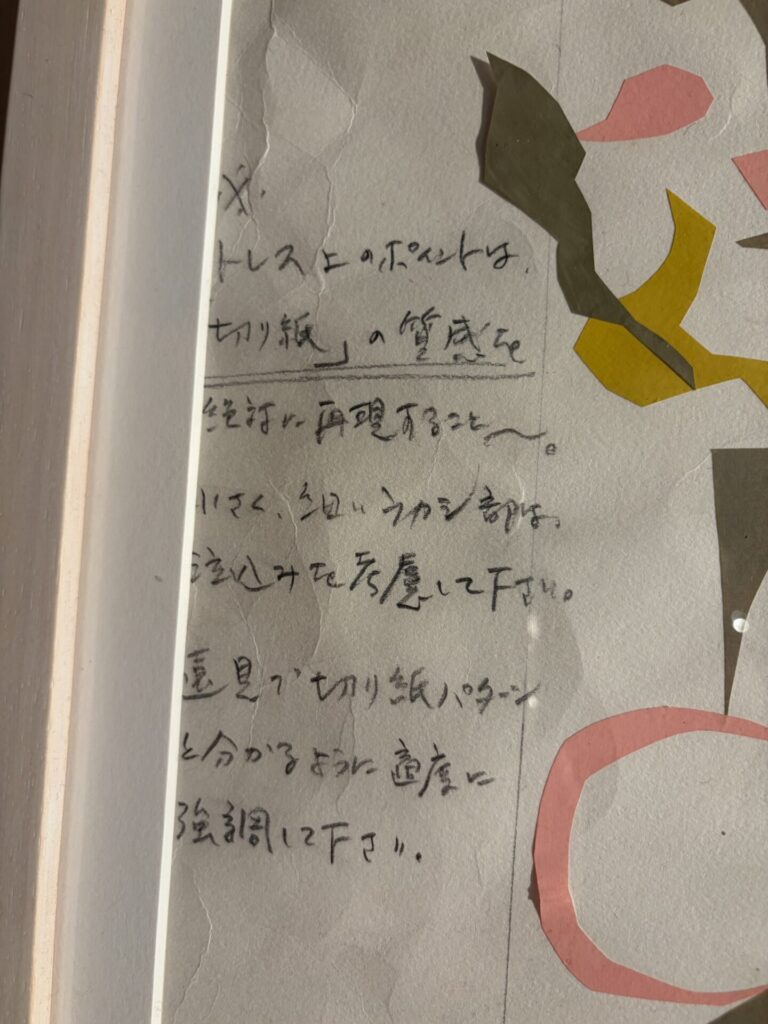 ※
トレス上のポイントは、
切り紙」の質感を
絶対に再現すること〜。
小さく、細いヌカシ部は、
注込みを考慮して下さい。
遠見で切り紙パターン
と分かるように適度に
強調して下さい。